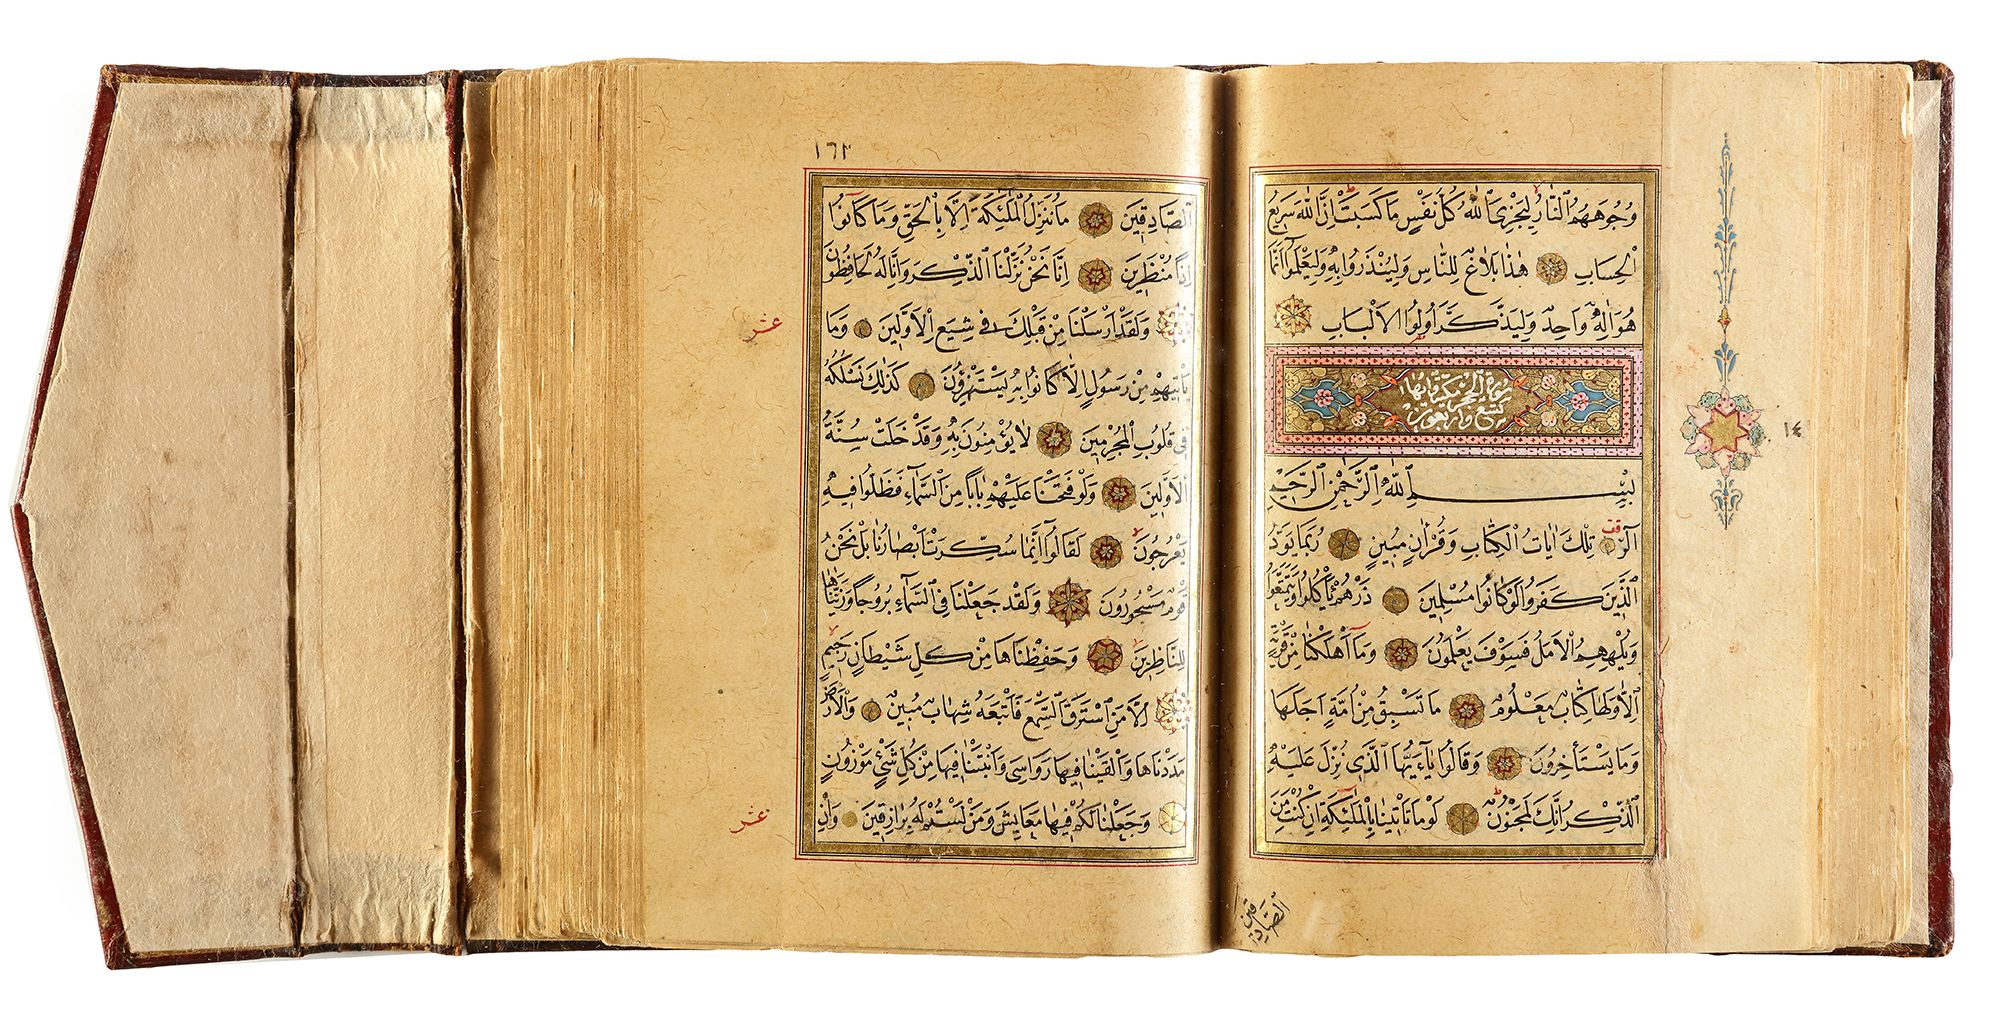 وُجُوهَهُمُ النَّارُ لِيَجْزِيَ اللّٰهُ كُلَّ نَفْسٍ مَا كَسَبَتْ اِنَّ اللّٰهَ سَرِيعُ
الْحِسَابِ هٰذَا بَلَاغٌ لِلنَّاسِ وَلِيُنْذَرُوا بِهِ وَلِيَعْلَمُوا اَنَّمَا
هُوَ اِلٰهٌ وَاحِدٌ وَلِيَذَّكَّرَ اُولُوا الْاَلْبَابِ
سورة الحجر مكية وآيها
تسع وتسعون
١٤
بِسْمِ اللّٰهِ الرَّحْمٰنِ الرَّحِيمِ
قف
الٓرٰ تِلْكَ اٰيَاتُ الْكِتَابِ وَقُرْاٰنٍ مُبِينٍ رُبَمَا يَوَدُّ
الَّذِينَ كَفَرُوا لَوْ كَانُوا مُسْلِمِينَ ذَرْهُمْ يَأْكُلُوا وَيَتَمَتَّعُوا
وَيُلْهِهِمُ الْاَمَلُ فَسَوْفَ يَعْلَمُونَ وَمَا اَهْلَكْنَا مِنْ قَرْيَةٍ
اِلَّا وَلَهَا كِتَابٌ مَعْلُومٌ مَا تَسْبِقُ مِنْ اُمَّةٍ اَجَلَهَا
وَمَا يَسْتَأْخِرُونَ وَقَالُوا يَا اَيُّهَا الَّذِي نُزِّلَ عَلَيْهِ
الذِّكْرُ اِنَّكَ لَمَجْنُونٌ لَوْ مَا تَأْتِينَا بِالْمَلٰئِكَةِ اِنْ كُنْتَ مِنَ
الصَّادِقِينَ
١٦٢
الصَّادِقِينَ مَا نُنَزِّلُ الْمَلٰئِكَةَ اِلَّا بِالْحَقِّ وَمَا كَانُوا
اِذًا مُنْظَرِينَ اِنَّا نَحْنُ نَزَّلْنَا الذِّكْرَ وَاِنَّا لَهُ لَحَافِظُونَ
وَلَقَدْ اَرْسَلْنَا مِنْ قَبْلِكَ فِي شِيَعِ الْاَوَّلِينَ وَمَا
عشر
يَأْتِيهِمْ مِنْ رَسُولٍ اِلَّا كَانُوا بِهِ يَسْتَهْزِؤُنَ كَذٰلِكَ نَسْلُكُهُ
فِي قُلُوبِ الْمُجْرِمِينَ لَا يُؤْمِنُونَ بِهِ وَقَدْ خَلَتْ سُنَّةُ
الْاَوَّلِينَ وَلَوْ فَتَحْنَا عَلَيْهِمْ بَابًا مِنَ السَّمَاءِ فَظَلُّوا فِيهِ
يَعْرُجُونَ لَقَالُوا اِنَّمَا سُكِّرَتْ اَبْصَارُنَا بَلْ نَحْنُ
قَوْمٌ مَسْحُورُونَ وَلَقَدْ جَعَلْنَا فِي السَّمَاءِ بُرُوجًا وَزَيَّنَّاهَا
لِلنَّاظِرِينَ وَحَفِظْنَاهَا مِنْ كُلِّ شَيْطَانٍ رَجِيمٍ
اِلَّا مَنِ اسْتَرَقَ السَّمْعَ فَاَتْبَعَهُ شِهَابٌ مُبِينٌ وَالْاَرْضَ
مَدَدْنَاهَا وَاَلْقَيْنَا فِيهَا رَوَاسِيَ وَاَنْبَتْنَا فِيهَا مِنْ كُلِّ شَيْءٍ مَوْزُونٍ
وَجَعَلْنَا لَكُمْ فِيهَا مَعَايِشَ وَمَنْ لَسْتُمْ لَهُ بِرَازِقِينَ وَاِنْ
عشر